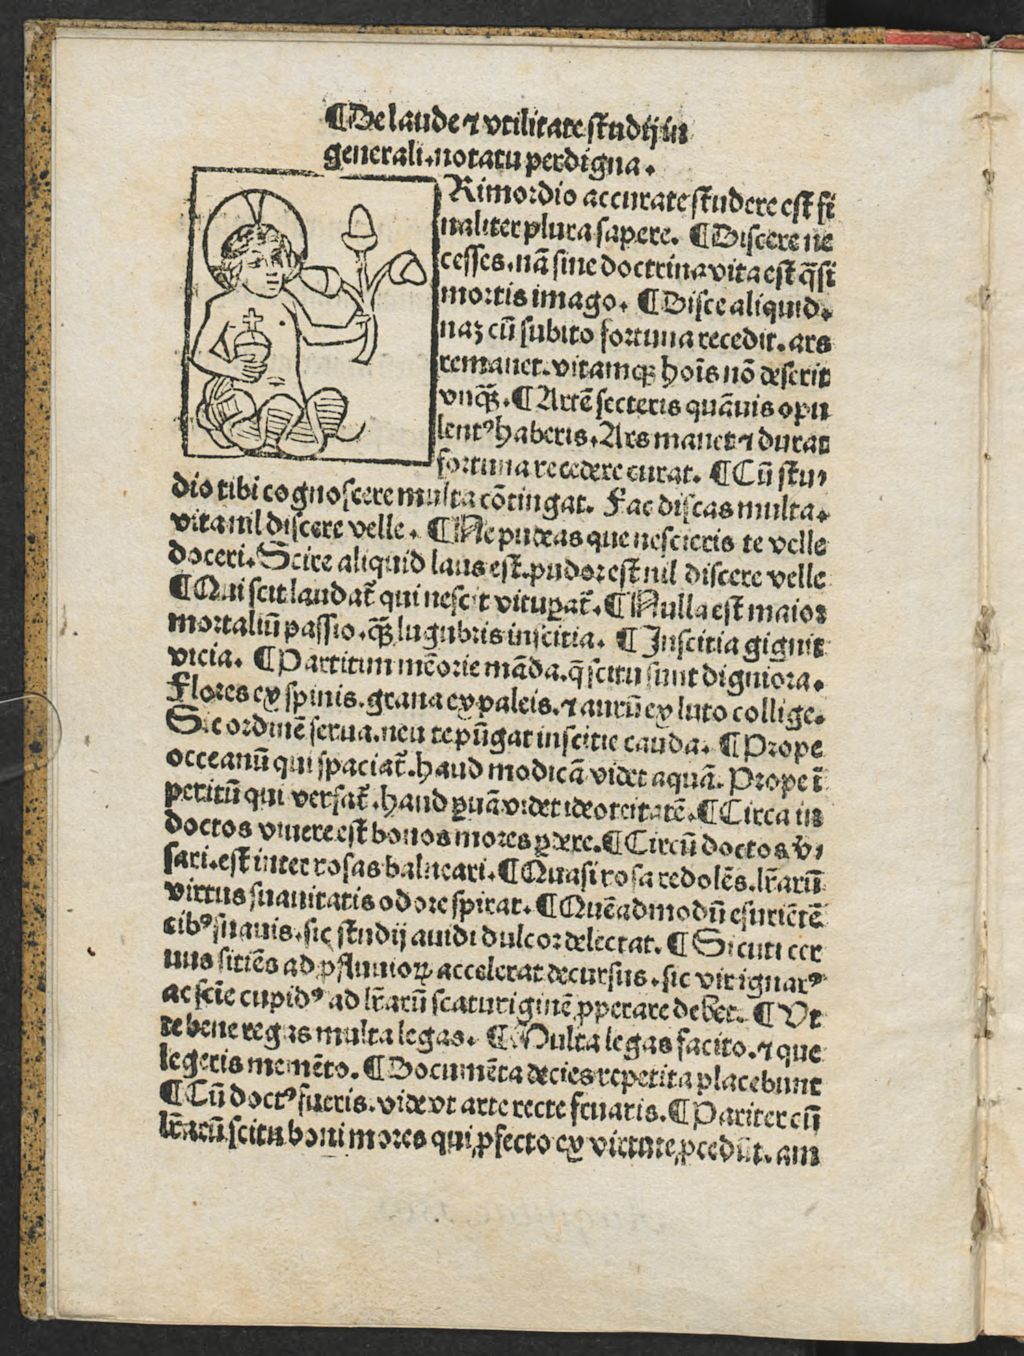 ¶De laude ⁊ vtilitate studij in
generali. notatu perdigna.
Rimordio accurate studere est fi
naliter plura sapere. ¶Discere ne
cesses. nā sine doctrina vita est q̄si
mortis imago. ¶Disce aliquid.
naꝫ cū subito fortuna recedit. ars
remanet. vitamqꝫ hoīs nō deserit
vnq̄ꝫ. ¶Artē secteris quāuis opu
lentꝰ haberis. Ars manet ⁊ durat
fortuna recedere curat. ¶Cū stu⸗
dio tibi cognoscere multa cōtingat. Fac discas multa.
vita nil discere velle. ¶Ne pudeas que nescieris te velle
doceri. Scire aliquid laus est. pudor est nil discere velle
¶Qui scit laudat̄ qui nescit vituꝑat̄. ¶Nulla est maior
mortaliū passio. q̄ꝫ lugubris inscitia. ¶Inscitia gignit
vicia. ¶Partitim mēorie māda. q̄ scitu sunt digniora.
Flores ex spinis. grana ex paleis. ⁊ aurū ex luto collige.
Sic ordinē serua. neu te pūgat inscitie cauda. ¶Prope
occeanū qui spaciat̄. haud modicā videt aquā. Prope ī
peritū qui versat̄. haud ꝑuā videt ideoteitatē. ¶Circa in
doctos viuere est bonos mores ꝑdere. ¶Circū doctos v̄⸗
sari. est inter rosas balneari. ¶Quasi rosa redolēs. lr̄arū
virtus suauitatis odore spirat. ¶Quēadmodū esuriētē
cibꝰ suauis. sic studij auidi dulcor delectat. ¶Sicuti cer
uus sitiēs ad ꝓfluuioꝝ accelerat decursus. sic vir ignarꝰ
ac scīe cupidꝰ ad lr̄arū scaturiginē ꝓperare debet. ¶Vt
te bene regas multa legas. ¶Multa legas facito. ⁊ que
legeris memēto. ¶Documēta decies repetita placebunt
¶Cū doctꝰ fueris. vide vt arte recte fruaris. ¶Pariter cū
lr̄arū scitu boni mores qui ꝓfecto ex virtute ꝓcedūt. am